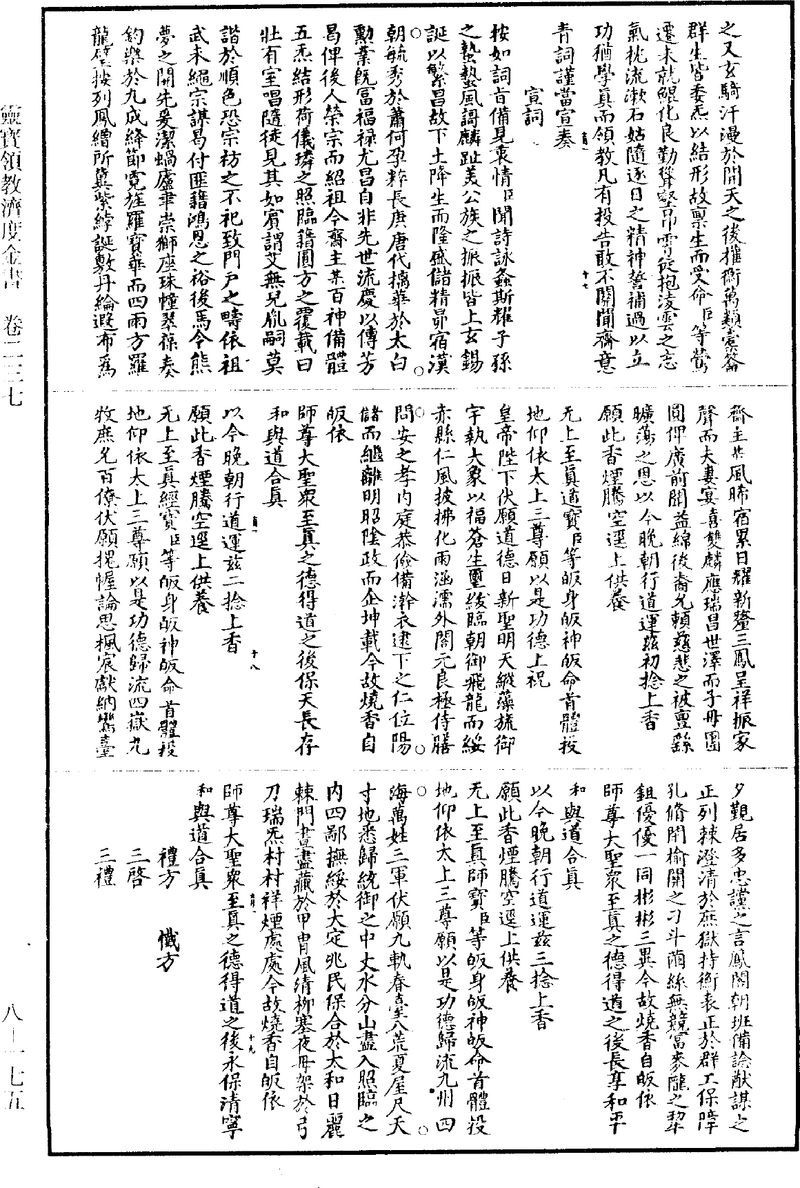 之又玄騎汗漫於開天之後權衡萬類橐籥
群生皆委炁以結形故稟生而受命臣等鶯
遷未就鯤化良勤聳壑昂霄從抱淩雲之志
氣枕流漱石姑隨逐日之精神誓補過以立
功猶學真而領教凡有投告敢不關聞齋意
青詞謹當宣奏
宣詞
按如詞旨備見衷情臣聞詩詠螽斯耀子孫
之蟄蟄風謌麟趾美公族之振振皆上玄錫
誕以繁昌故下土降生而隆盛儲精昴宿漢
朝毓秀於蕭何孕粹長庚唐代摛華於太白
勳業既富福祿尤昌自非先世流慶以傳芳
曷俾後人榮宗而紹祖今齋主某百神備體
五炁結形荷儀璘之照臨藉圓方之覆載曰
壯有室唱隨徒見其如賓謂艾無兒胤嗣莫
諧於順色恐宗祊之不祀致門戶之疇依祖
武未繩宗諜曷付匪藉鴻恩之裕後焉令熊
夢之開先爰潔蝸廬聿崇獅座珠幢翠葆奏
鈞樂於九成絳節霓旌羅寶華而四雨方羅
龍璧按列鳳繒所冀紫綍誕敷丹綸遐布為
齋主某風晞宿累日耀新釐三鳳呈祥振家
聲而夫妻宴喜雙麟應瑞昌世澤而子母團
圓俾廣前聞益綿後裔允賴慈悲之被亶繇
曠蕩之恩以今晚朝行道運茲初捻上香
願此香煙騰空逕上供養
无上至真道寶臣等皈身皈神皈命首體投
地仰依太上三尊願以是功德上祝
皇帝陛下伏願道德日新聖明天縱藻旒御
宇執大象以福蒼生璽紱臨朝御飛龍而綏
赤縣仁風披拂化雨涵濡外閤元良極侍膳
問安之孝內庭恭儉備澣衣逮下之仁位陽
儲而繼離明昭陰政而企坤載今故燒香自
皈依
師尊大聖衆至真之德得道之後保天長存
和與道合真
以今晚朝行道運茲二捻上香
願此香煙騰空逕上供養
无上至真經寶臣等皈身皈神皈命首體投
地仰依太上三尊願以是功德歸流四嶽九
牧庶尹百僚伏願槐幄論思楓宸獻納鸞臺
夕覲居多忠謹之言鳳閣朝班備諗猷謀之
正列棘澄清於庶獄持衡表正於群工保障
孔脩閉榆關之刁斗繭絲無競富麥隴之犂
鉏優優一同彬彬三異今故燒香自皈依
師尊大聖衆至真之德得道之後長享和平
和與道合真
以今晚朝行道運茲三捻上香
願此香煙騰空逕上供養
无上至真師寶臣等皈身皈神皈命首體投
地仰依太上三尊願以是功德歸流九州四
海萬姓三軍伏願九軌春臺八荒夏屋尺天
寸地悉歸統御之中丈水分山盡入照臨之
內四鄙撫綏於大定兆民保合於太和日麗
棘門晝盡藏於甲冑風清柳塞夜毋架於弓
刀瑞炁村村祥煙處處今故燒香自皈依
師尊大聖衆至真之德得道之後永保清寧
和與道合真
禮方　懺方
三啓
三禮
十七
十八
十九
靈寶領教濟度金書　卷二三七
八—一七五